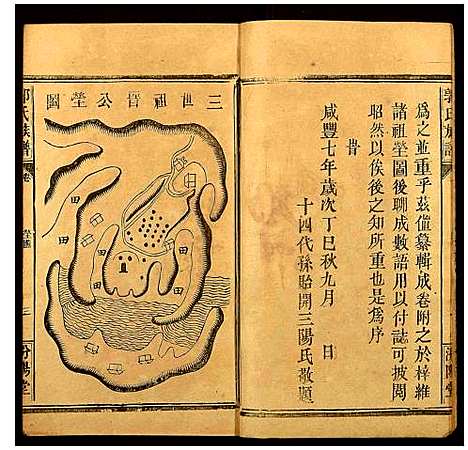 爲之並重乎茲僅纂輯成卷附之於梓維
諸祖塋圖後聊成數語用以付誌可披閱
昭然以俟後之知所重也是爲序
旹
咸豐七年歲次丁巳秋九月 日
十四代孫貽開三陽氏敬題
郭氏族譜
三世祖晉公塋圖
田
田
田
田
郭氏族譜
卷
三
汾陽堂